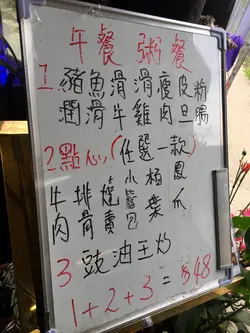 午餐 粥餐
1. 豬魚滑滑瘦皮粉
潤滑牛雞肉旦腸
2. 點心,(任選一款)
牛排燒小極鳳
肉骨賣包葉爪
3 豉油王炒
1+2+3=$48